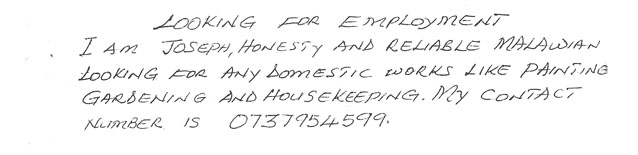 LOOKING FOR EMPLOYMENT
I AM JOSEPH, HONESTY AND RELIABLE MALAWIAN
LOOKING FOR ANY DOMESTIC WORKS LIKE PAINTING
GARDENING AND HOUSEKEEPING. MY CONTACT
NUMBER IS 0737954599.